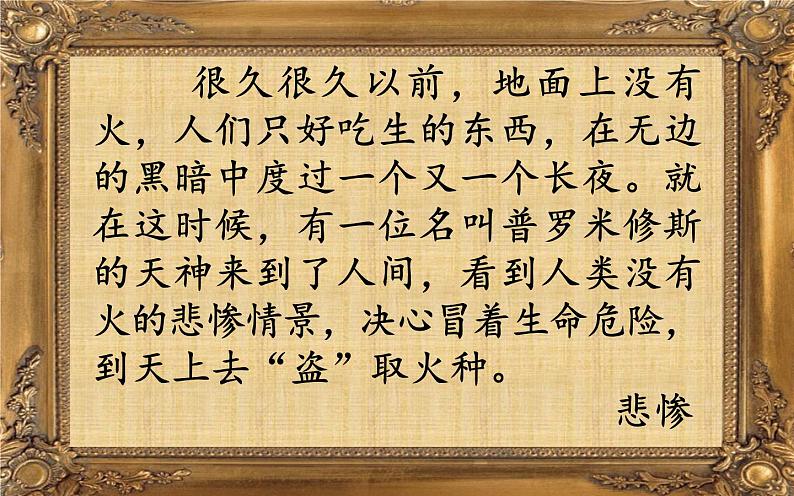 很久很久以前，地面上没有
火，人们只好吃生的东西，在无边
的黑暗中度过一个又一个长夜。就
在这时候，有一位名叫普罗米修斯
的天神来到了人间，看到人类没有
火的悲惨情景，决心冒着生命危险，
到天上去“盗”取火种。
悲惨